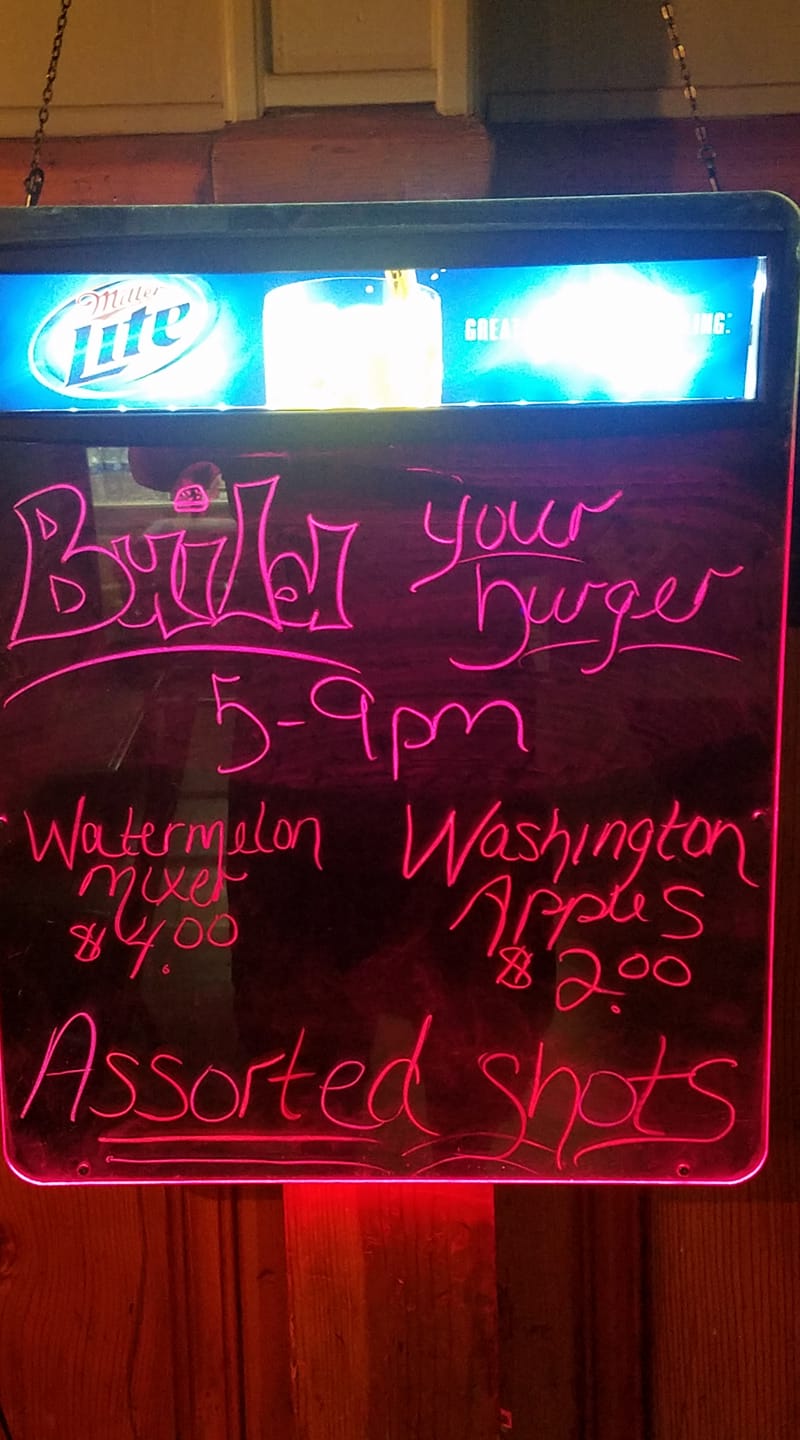 Miller
Lite
Build your
burger
5-9pm
Watermelon
mixer
$4.00
Washington
Apples
$2.00
Assorted shots